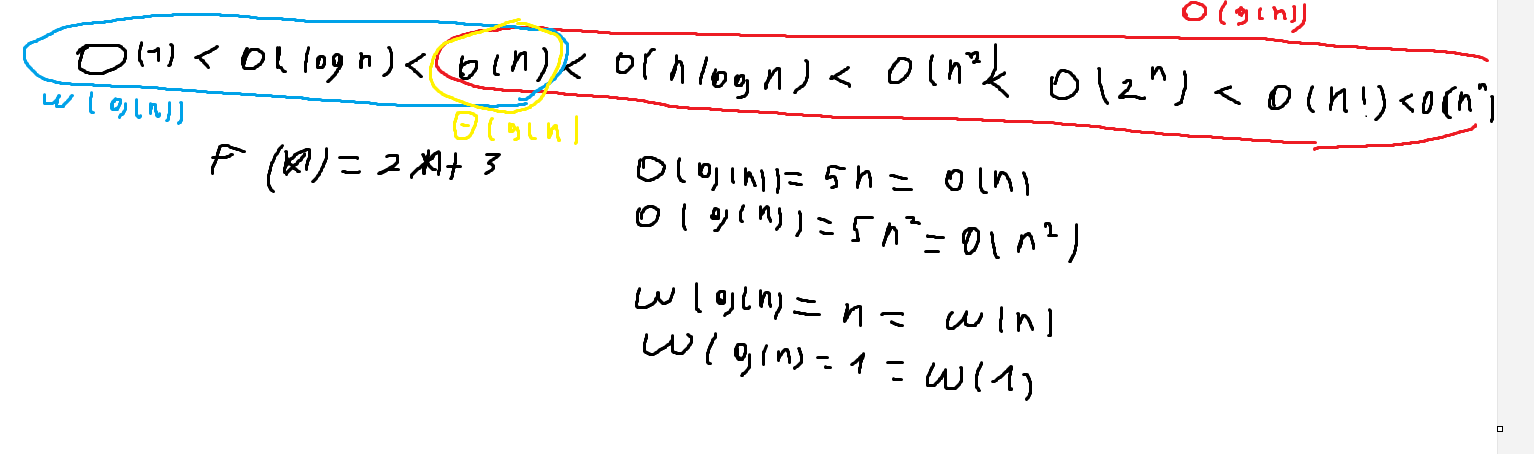 O(g(n))
O(1) < O(log n) < O(n) < O(n log n) < O(n²) < O(2ⁿ) < O(n!) < O(nⁿ)
w(g(n))
θ(g(n)
F(n) = 2n + 3
O(g(n)) = 5n = O(n)
O(g(n)) = 5n² = O(n²)
w(g(n) = n = w(n)
w(g(n) = 1 = w(1)